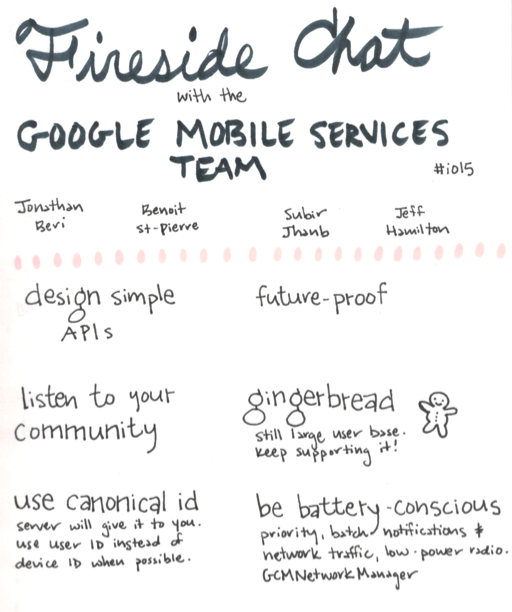 Fireside Chat
with the
GOOGLE MOBILE SERVICES
TEAM
#io15
Jonathan
Beri
Benoit
St-Pierre
Subir
Jhanb
Jeff
Hamilton
design simple
APIs
future-proof
listen to your
community
gingerbread
still large user base.
keep supporting it!
use canonical id
server will give it to you.
use user ID instead of
device ID when possible.
be battery-conscious
priority, batch notifications &
network traffic, low-power radio.
GCMNetworkManager